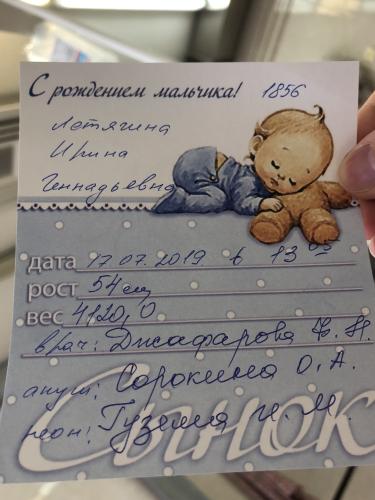 С рождением мальчика! 1856
Летягина
Ирина
Геннадьевна
дата 17.07.2019 в 13 05
рост 54 см
вес 4120,0
врач: Джафарова Ф. Н.
акуш: Сорокина О. А.
неон: Гуземя И. М.
Сынок